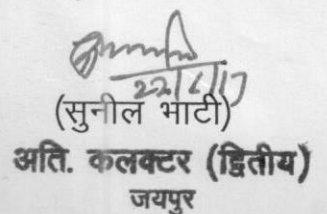 22/6/17
(सुनील भाटी)
अति. कलक्टर (द्वितीय)
जयपुर